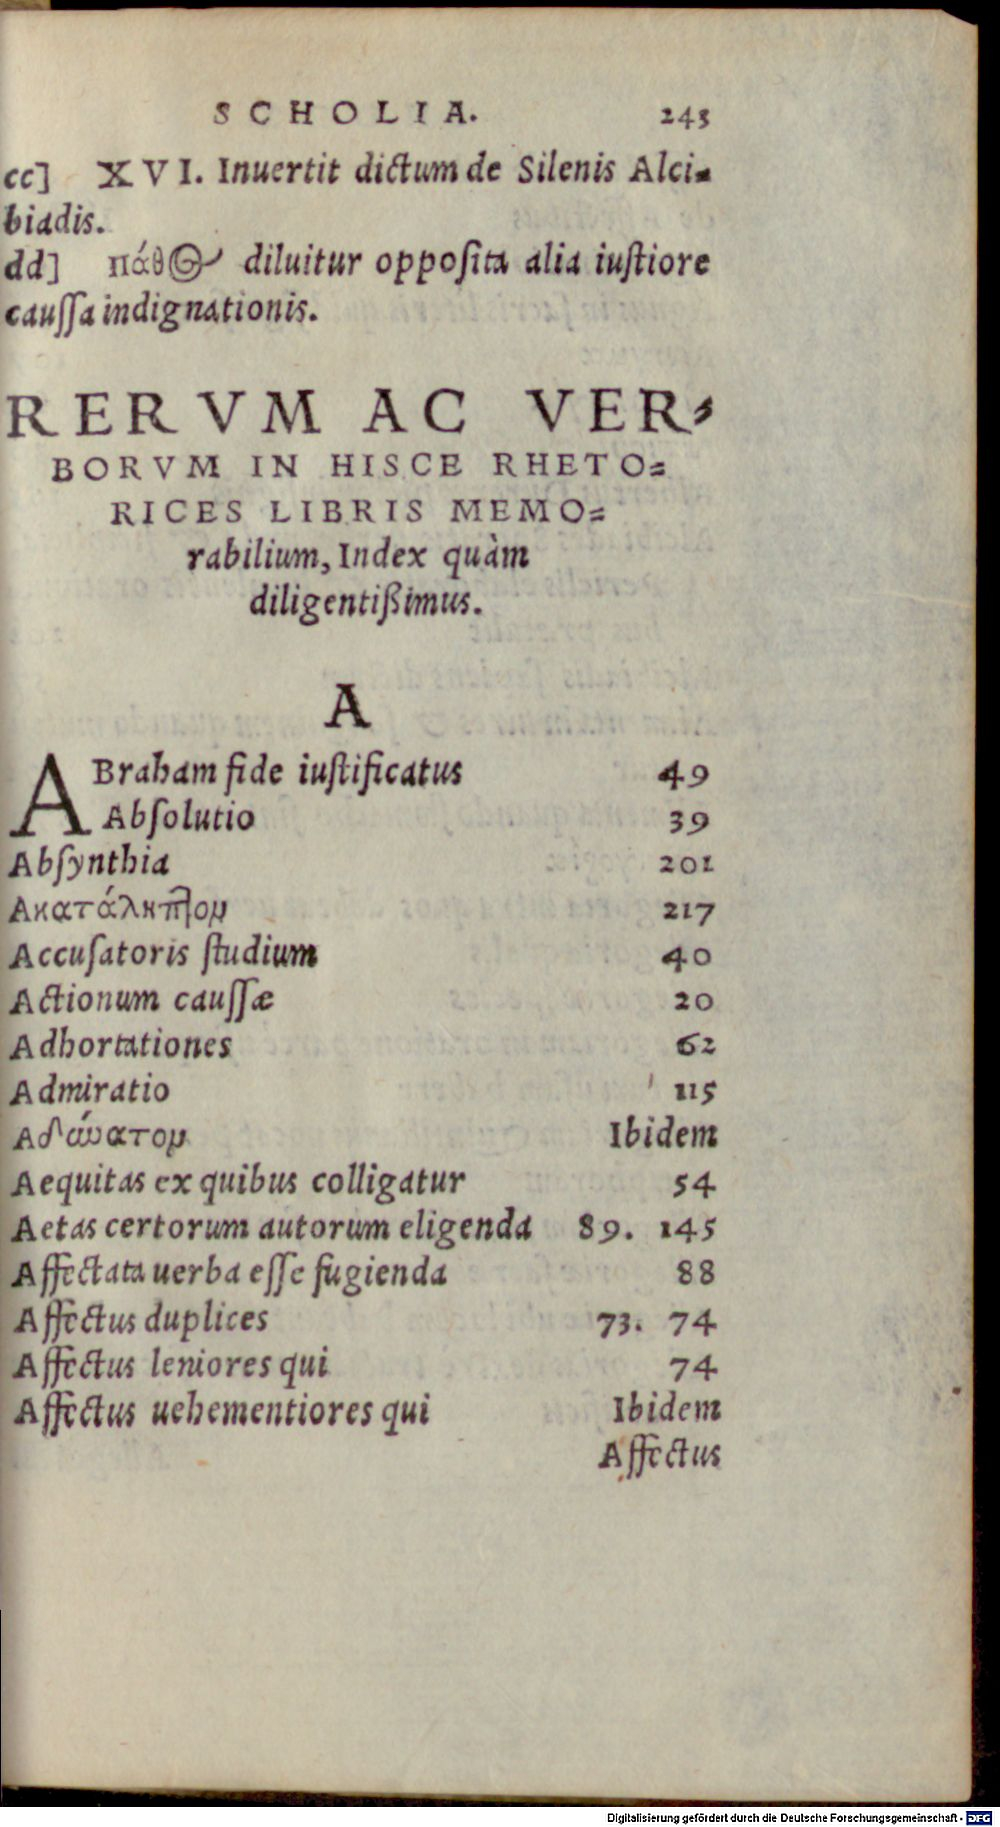 SCHOLIA. 243
cc] XVI. Inuertit dictum de Silenis Alci-
biadis.
dd] πάθος diluitur opposita alia iustiore
caussa indignationis.
RERVM AC VER-
BORVM IN HISCE RHETO=
RICES LIBRIS MEMO=
rabilium, Index quàm
diligentißimus.
A
ABraham fide iustificatus 49
Absolutio 39
Absynthia 201
Ακατάληπτον 217
Accusatoris studium 40
Actionum caussæ 20
Adhortationes 62
Admiratio 115
Αδύνατον Ibidem
Aequitas ex quibus colligatur 54
Aetas certorum autorum eligenda 89. 145
Affectata uerba esse fugienda 88
Affectus duplices 73. 74
Affectus leniores qui 74
Affectus uehementiores qui Ibidem
Affectus
Digitalisierung gefördert durch die Deutsche Forschungsgemeinschaft - DFG